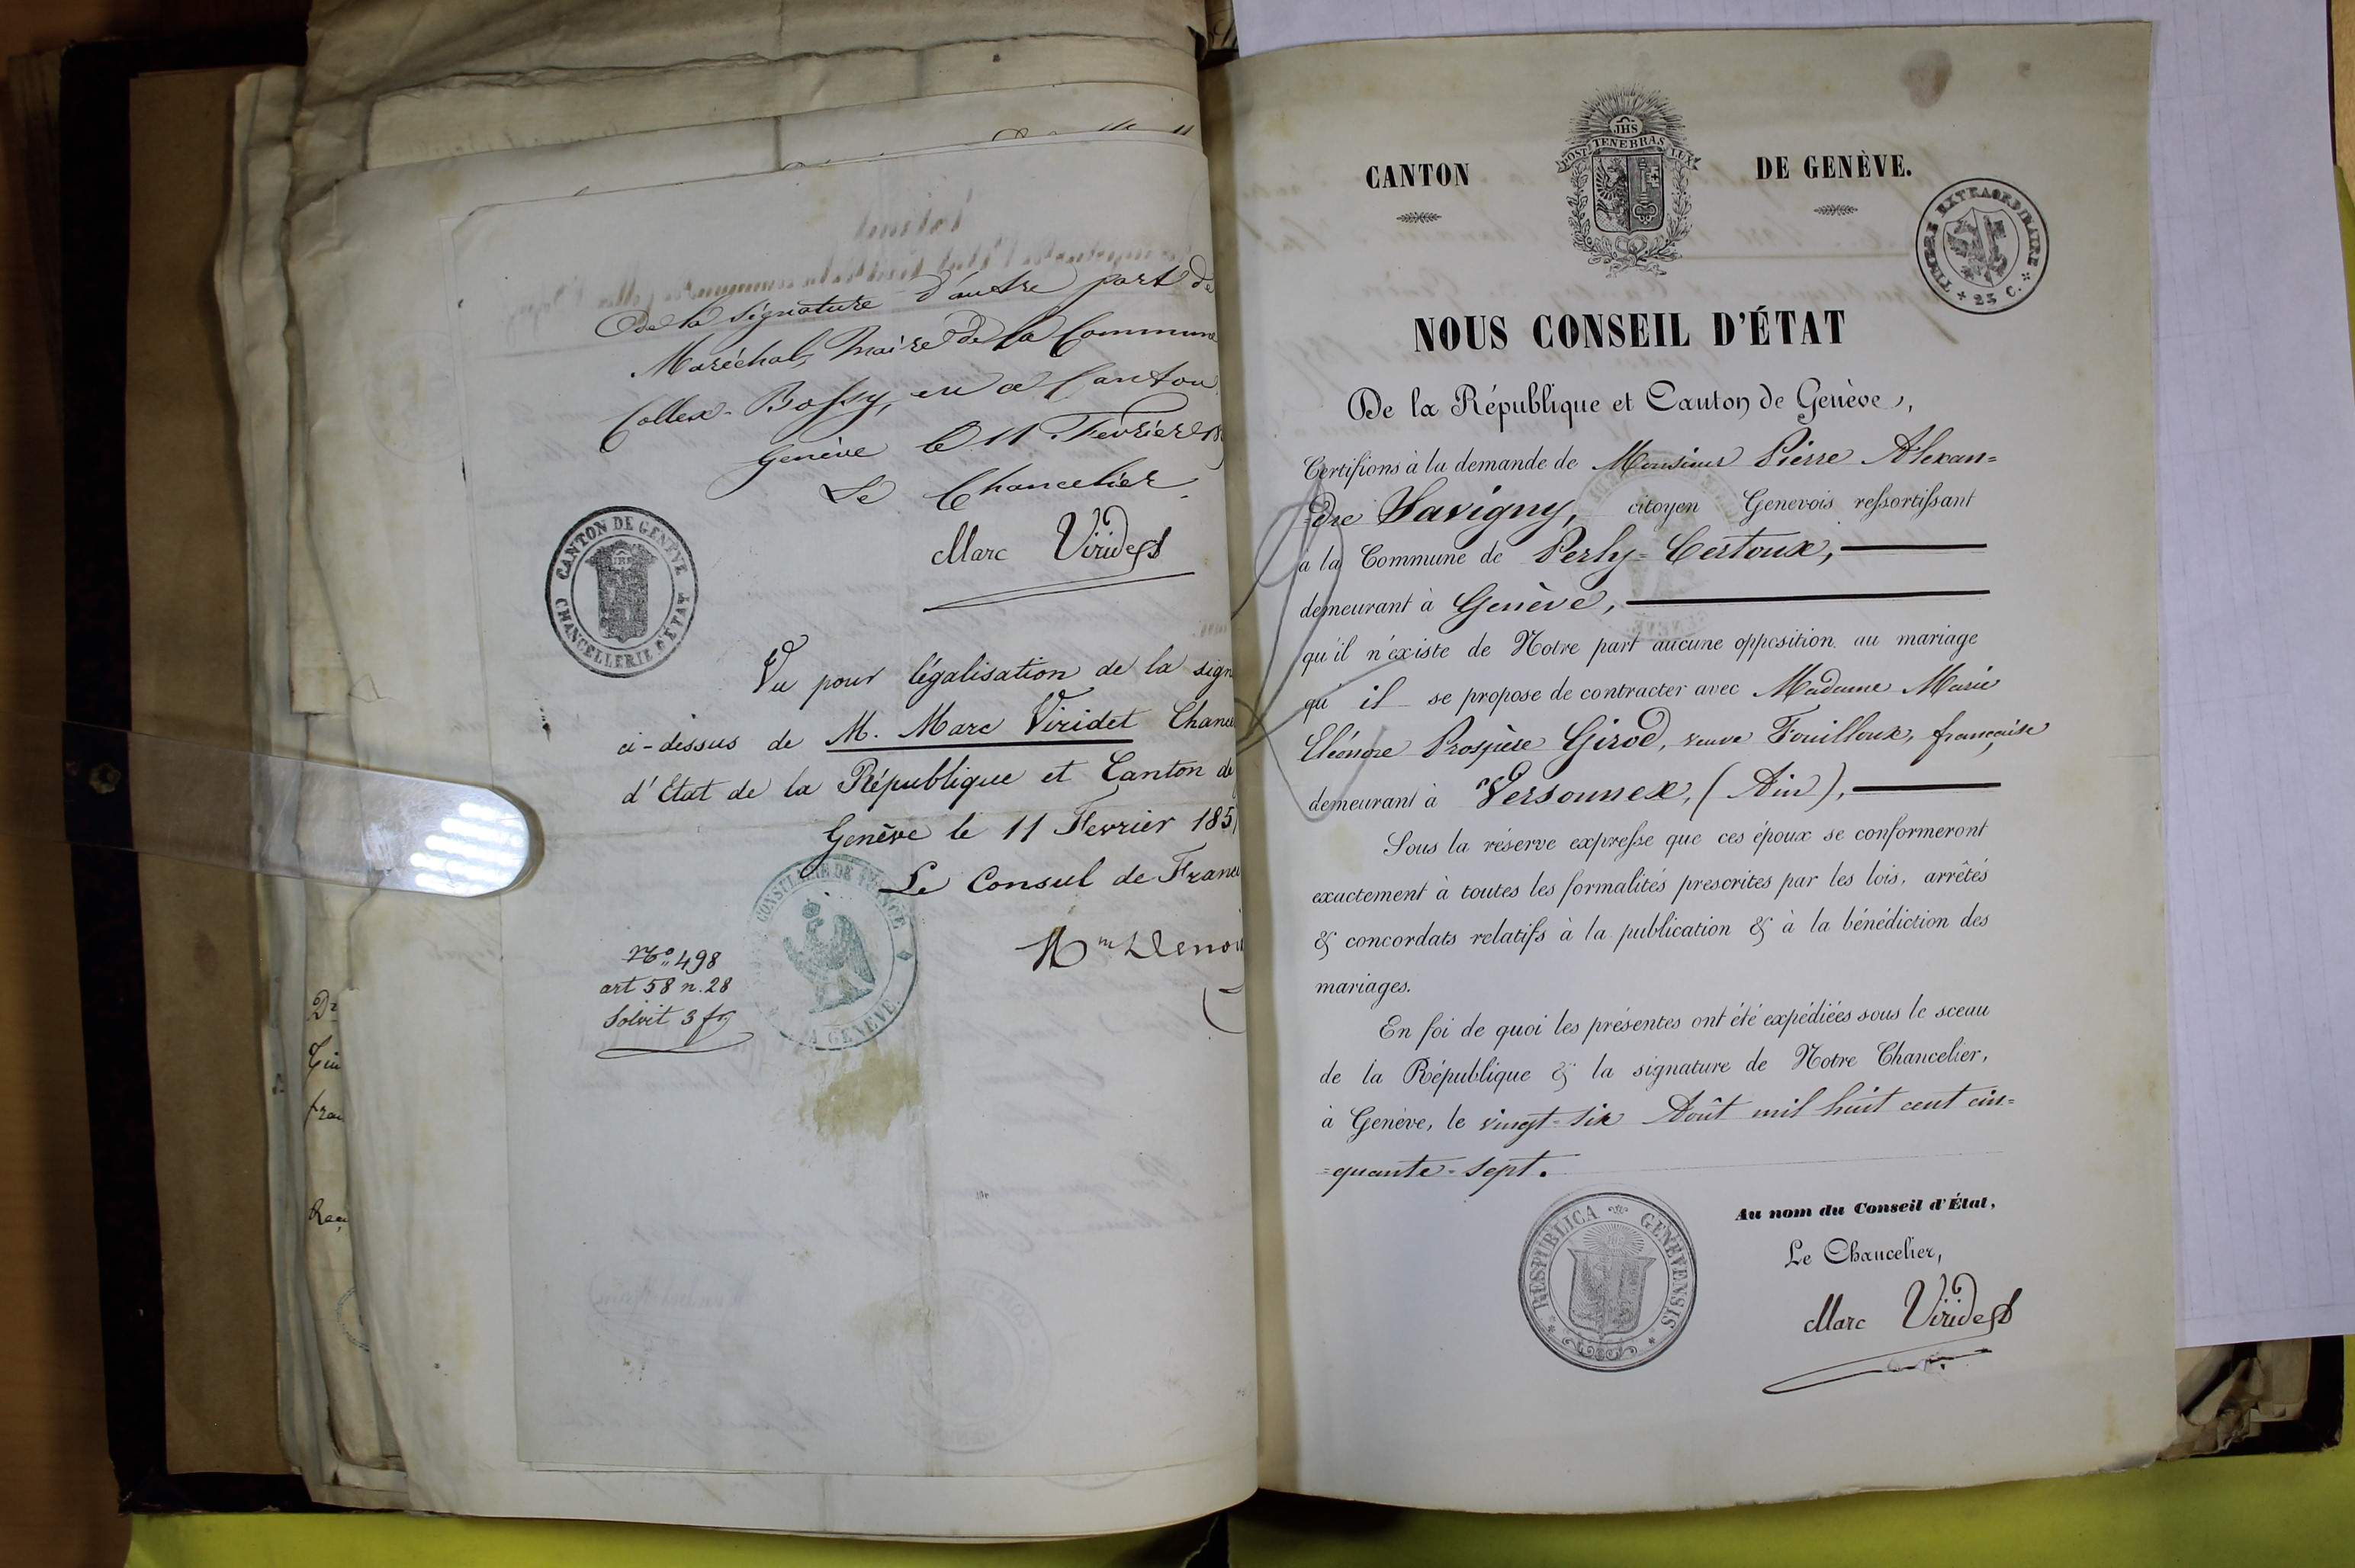 de la signature d'autre part de
Maréchal, Maire de la Commune
Collex-Bossy, en ce Canton
Genève le 11 Février 18
Le Chancelier
Marc Viridet
CANTON DE GENÈVE
CHANCELLERIE D'ÉTAT
Vu pour légalisation de la sign
ci-dessus de M. Marc Viridet Chanc
d'Etat de la République et Canton de
Genève le 11 Fevrier 185
Le Consul de Franc
CONSUL DE FRANCE
A GENÈVE
No 498
art 58 n. 28
Solvit 3 fr
CANTON DE GENÈVE.
JHS
POST TENEBRAS LUX
TIMBRE EXTRAORDINAIRE
25 C.
NOUS CONSEIL D'ÉTAT
De la République et Canton de Genève,
Certifions à la demande de Monsieur Pierre Alexan=
=dre Savigny, citoyen Genevois ressortissant
à la Commune de Perly=Certoux,
demeurant à Genève,
qu'il n'existe de Notre part aucune opposition au mariage
qu'il se propose de contracter avec Madame Marie
Eléonore Prospère Girod, veuve Fouilloux, française
demeurant à Versonnex, (Ain),
Sous la réserve expresse que ces époux se conformeront
exactement à toutes les formalités prescrites par les lois, arrêtés
& concordats relatifs à la publication & à la bénédiction des
mariages.
En foi de quoi les présentes ont été expédiées sous le sceau
de la République & la signature de Notre Chancelier,
à Genève, le vingt-six Août mil huit cent cin=
=quante-sept.
Au nom du Conseil d'État,
Le Chancelier,
Marc Viridet
RESPUBLICA GENEVENSIS